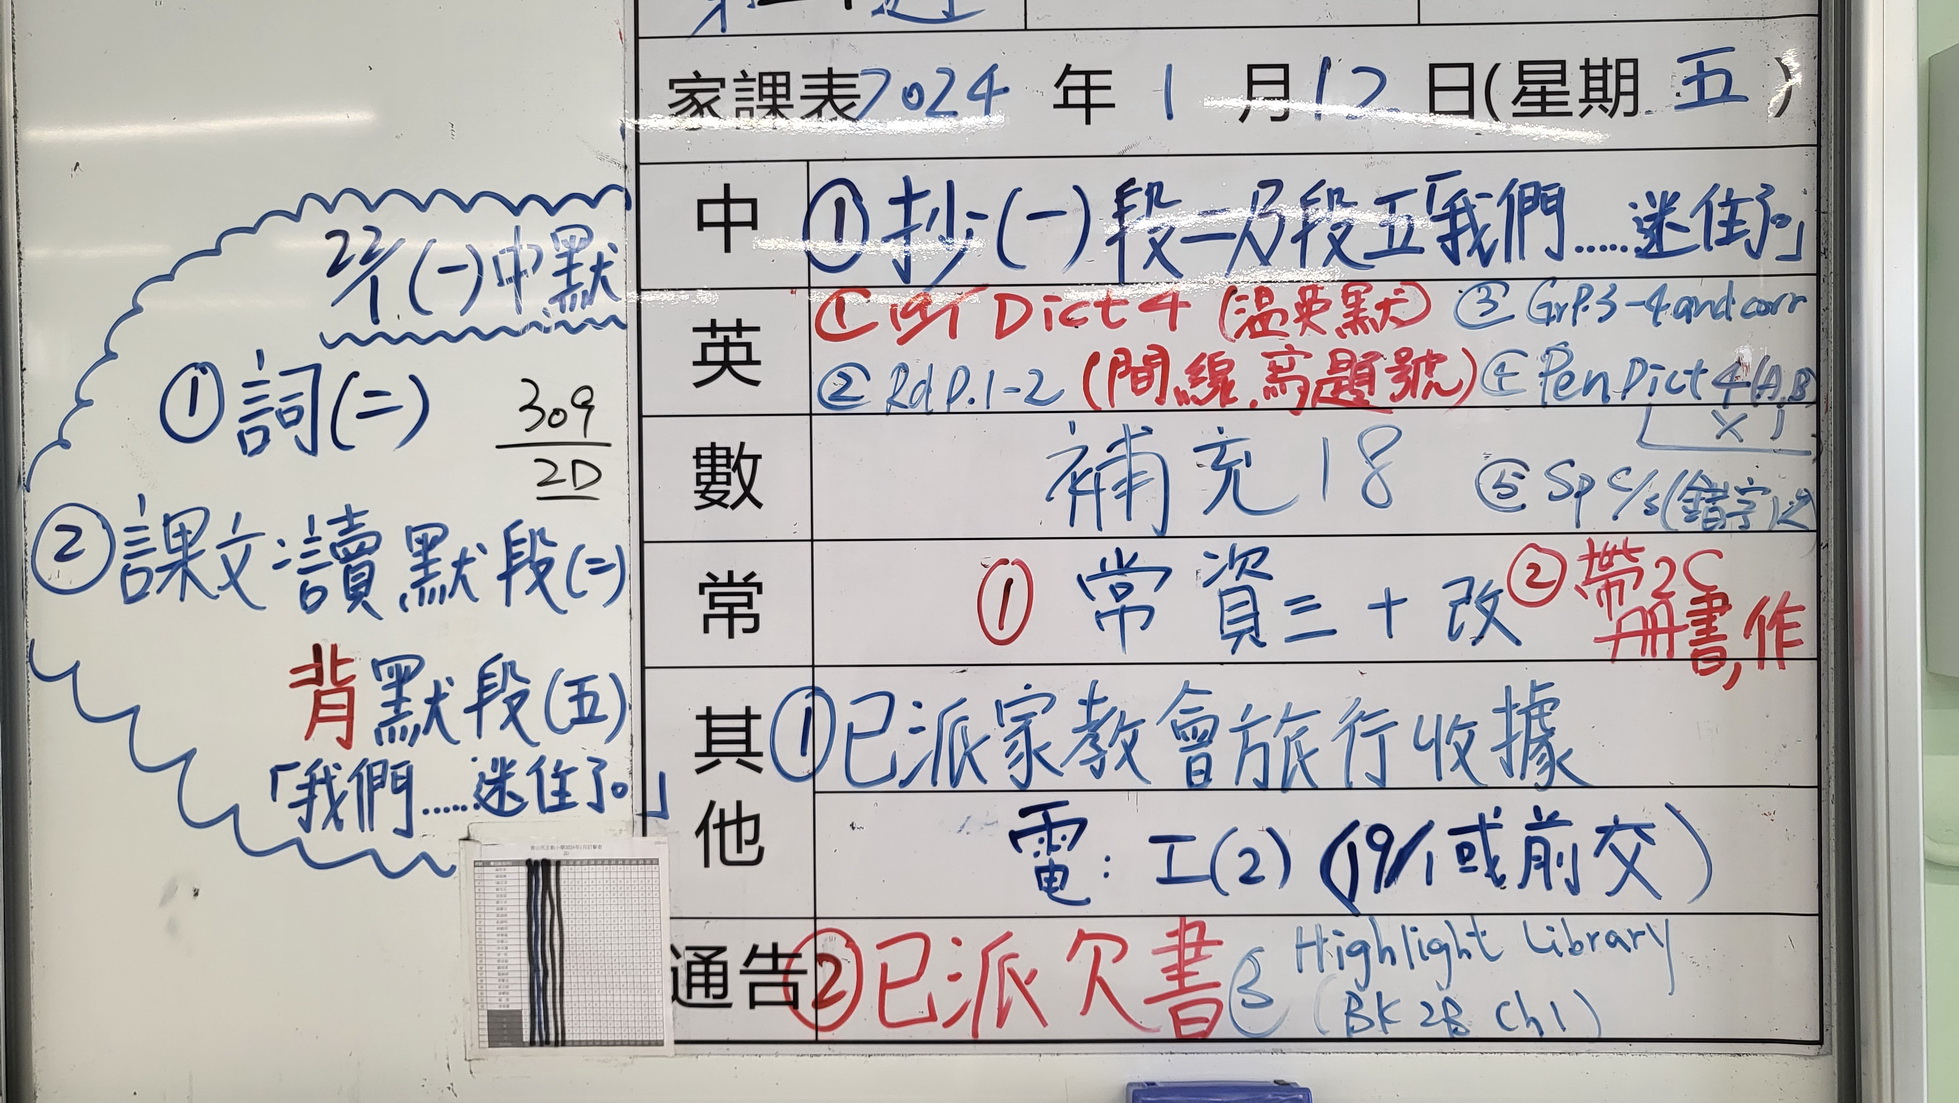 家課表 2024 年 1 月 12 日(星期 五 )
中 ①抄(一)段二及段五「我們……迷住了。」
英 ① Dict 4 (温英默) ③ Gr P.3-4 and corr
② Rd P.1-2 (間線,寫題號) ④ Pen Dict 4(A,B)
X 1
數 補充 18 ⑤ Sp c/s(錯字)
常 ① 常資三 + 改 ② 帶2C冊書,作
其他 ①已派家教會旅行收據
電: 工(2) (19/1或前交)
通告 ②已派欠書 ③ Highlight Library
(BK 2B Ch1)
22/1 (一)中默
①詞(二)
309
2D
②課文:讀默段(二)
背默段(五)
「我們……迷住了。」